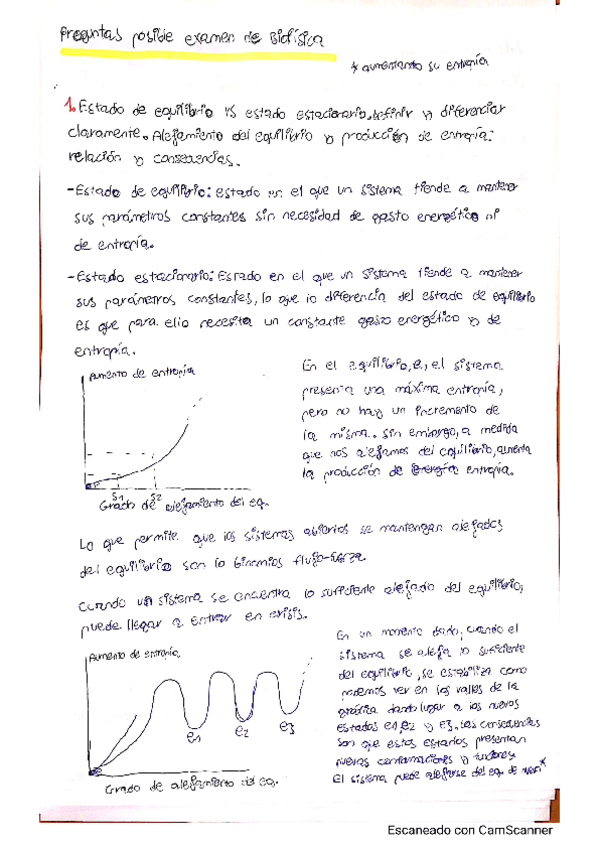 Preguntas posible examen de Biofísica
* aumentando su entropía
1. Estado de equilibrio vs estado estacionario, definir y diferenciar
claramente. Alejamiento del equilibrio y producción de entropía:
relación y consecuencias.
-Estado de equilibrio: estado en el que un sistema tiende a mantener
sus parámetros constantes sin necesidad de gasto energético ni
de entropía.
-Estado estacionario: Estado en el que un sistema tiende a mantener
sus parámetros constantes, lo que lo diferencia del estado de equilibrio
es que para ello necesita un constante gasto energético y de
entropía.
Aumento de entropía
S1 S2
Grado de alejamiento del eq.
En el equilibrio, e, el sistema
presenta una máxima entropía,
pero no hay un incremento de
la misma. Sin embargo, a medida
que nos alejamos del equilibrio, aumenta
la producción de entropía.
Lo que permite que los sistemas abiertos se mantengan alejados
del equilibrio son lo binomios flujo-fuerza
Cuando un sistema se encuentra lo suficiente alejado del equilibrio,
puede llegar a entrar en crisis.
Aumento de entropía
e1 e2 e3
Grado de alejamiento del eq.
En un momento dado, cuando el
sistema se aleja lo suficiente
del equilibrio, se estabiliza como
podemos ver en los valles de la
gráfica dando lugar a los nuevos
estados e1, e2 y e3. Las consecuencias
son que estos estados presentan
nuevas conformaciones y funciones.
El sistema puede alejarse del eq. de nuevo*
Escaneado con CamScanner